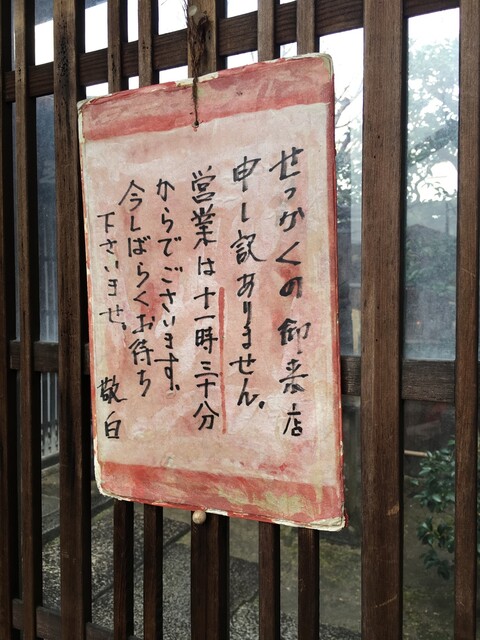 せっかくの御来店
申し訳ありません。
営業は十一時三十分
からでございます。
今しばらくお待ち
下さいませ。 敬白